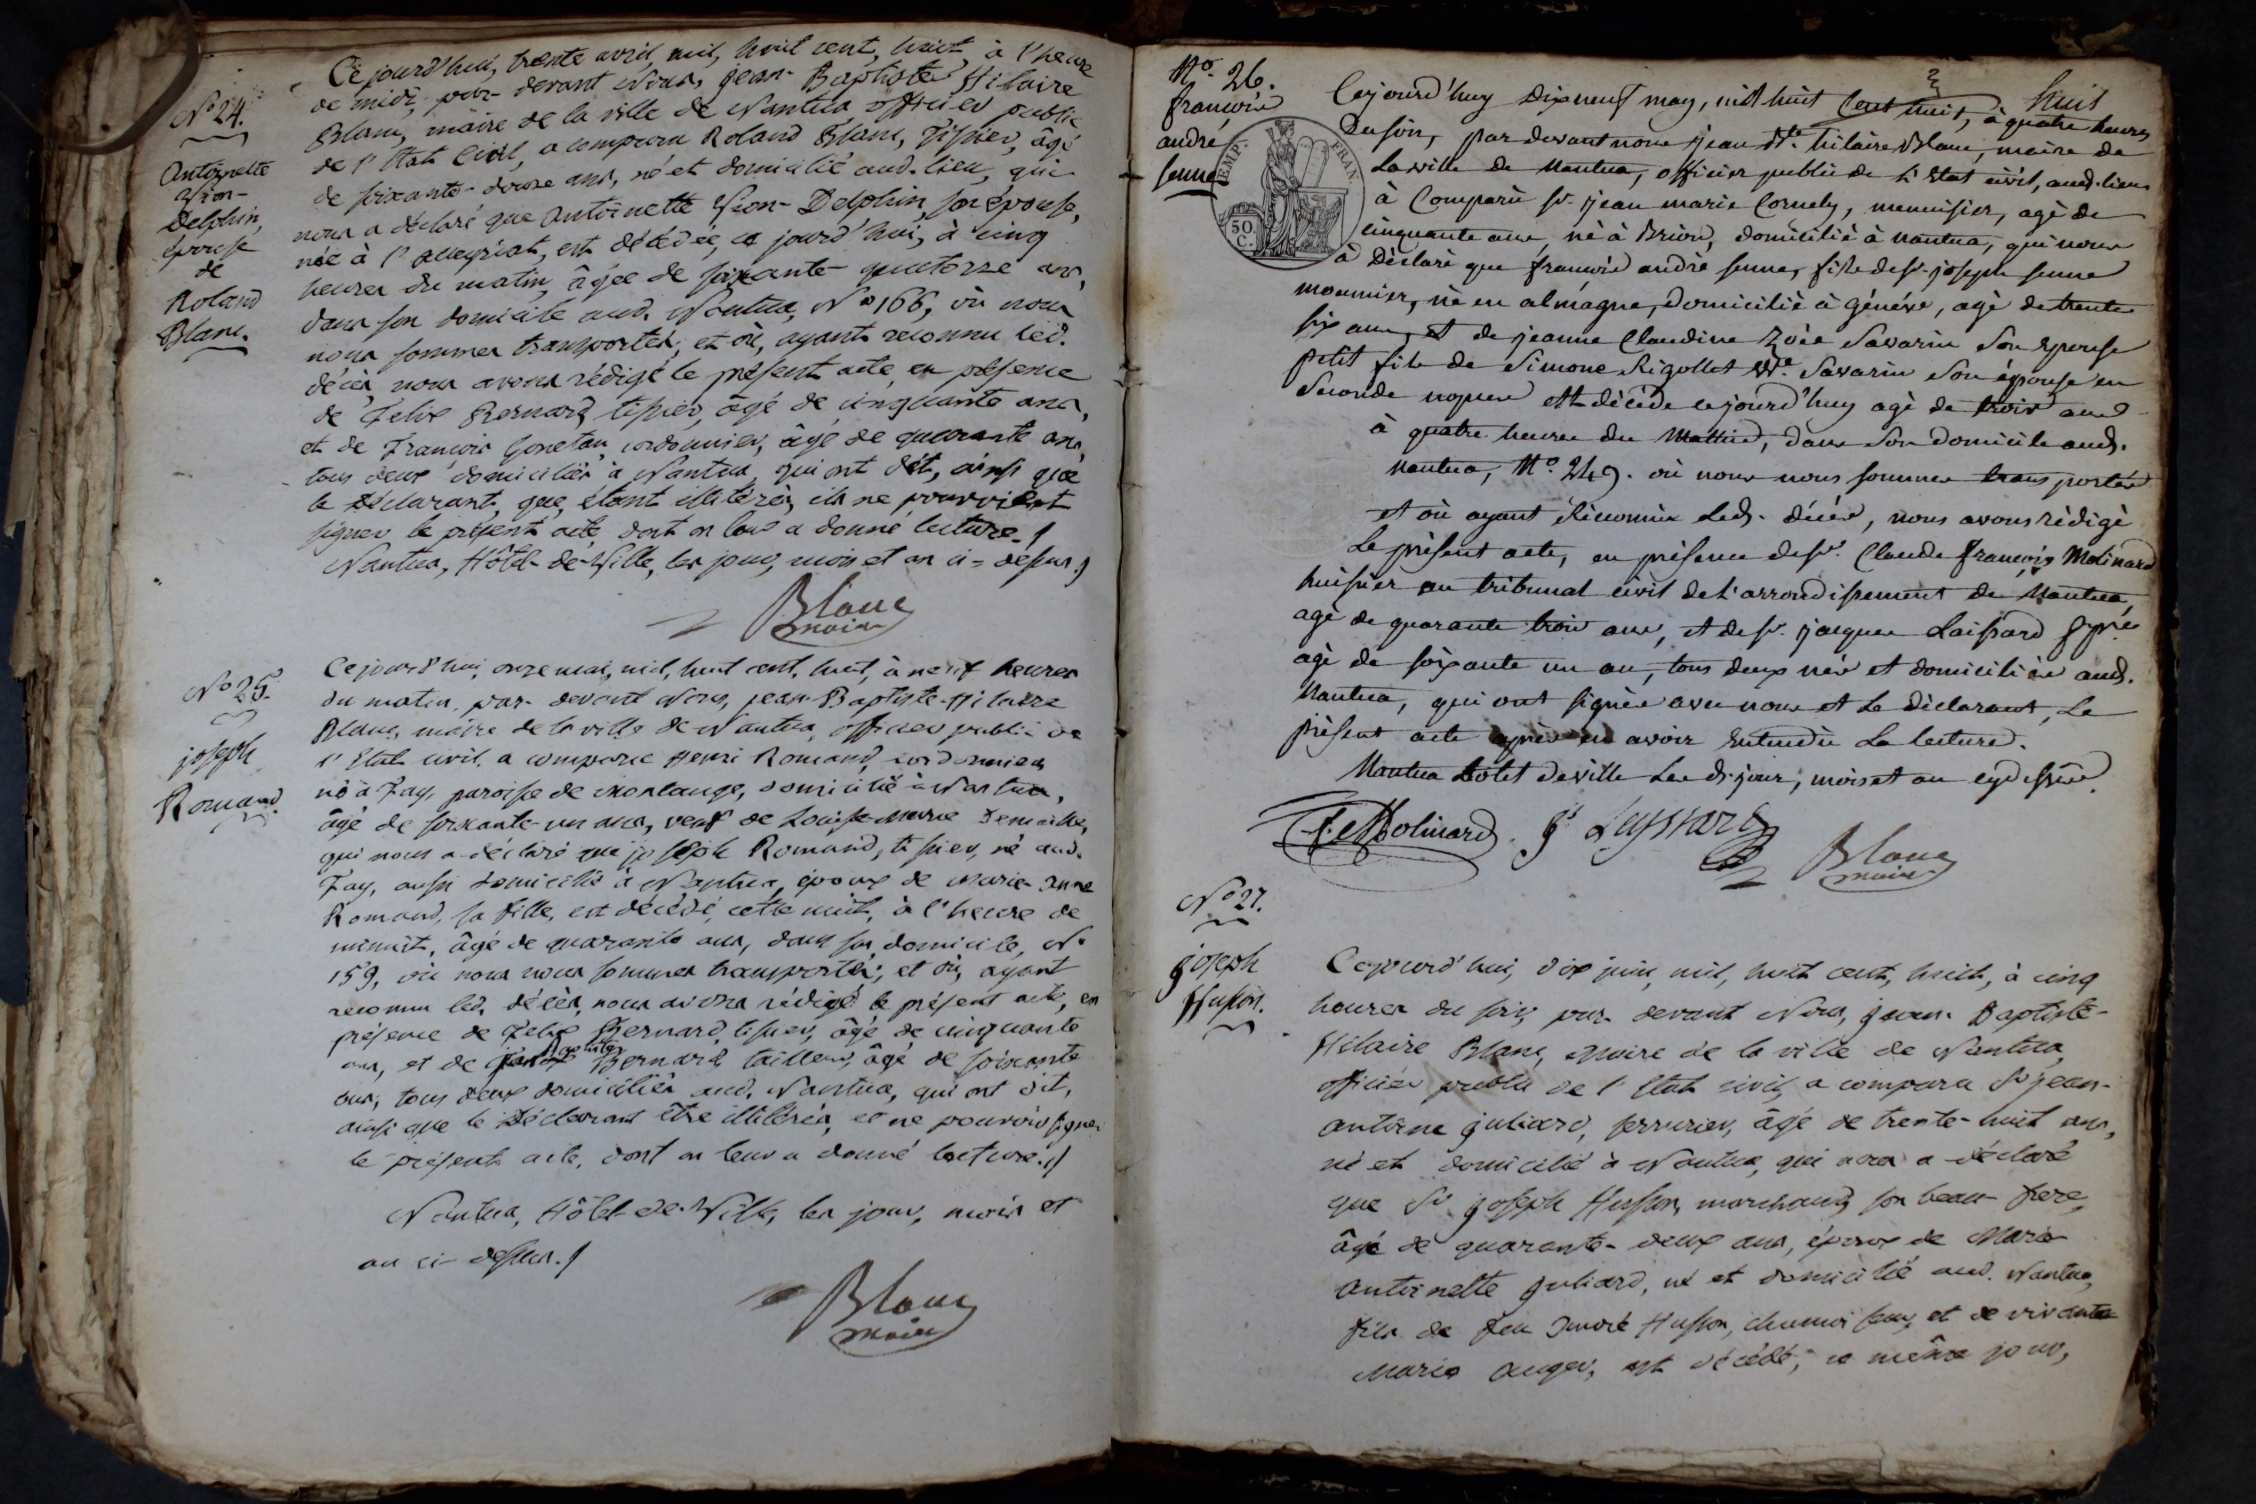 Ce jourd'hui, trente avril, mil, huit cent, huit, à l'heure
de midi, par-devant Nous, jean-Baptiste Hilaire
Blanc, maire de la ville de Nantua officier public
de l'Etat Civil, a comparu Roland Blanc, Tissier, âgé
de soixante-douze ans, né et domicilié aud. lieu, qui
nous a déclaré que antoinette Sion-Delphin, son épouse,
née à l'alleyriat, est décédée, ce jourd'hui, à cinq
heures du matin, âgée de soixante-quatorze ans,
dans son domicile aud. Nantua, No 166, où nous
nous sommes transportés; et où, ayant reconnu led.
décès, nous avons rédigé le présent acte, en présence
de Felix Bernard, tissier, âgé de cinquante ans,
et de François Gonetan, cordonnier, âgé de quarante ans,
tous deux domiciliés à Nantua, qui ont dit, ainsi que
le Déclarant, que, étant illitérés, ils ne pouvoient
signer le présent acte, dont on leur a donné lecture.
Nantua, Hôtel-de-Ville, les jour, mois et an ci-dessus
No 24.
Antoinette
Sion-
Delphin,
épouse
de
Roland
Blanc.
Blanc
maire
No 25.
joseph
Romand.
Ce jourd'hui, onze mai, mil, huit cent, huit, à neuf heures
du matin, par-devant Nous, jean-Baptiste-Hilaire
Blanc, maire de la ville de Nantua, officier public de
l'Etat civil, a comparu Henri Romand, cordonnier
né à Fay, paroisse de Morlange, domicilié à Nantua,
âgé de soixante-un ans, veuf de Louise-Marie
qui nous a déclaré que joseph Romand, tissier, né aud.
Fay, aussi domicilié à Nantua, époux de Marie-Anne
Romand, sa fille, est décédé, cette nuit, à l'heure de
minuit, âgé de quarante ans, dans son domicile, No
159, où nous nous sommes transportés; et où, ayant
reconnu led. décès, nous avons rédigé le présent acte, en
présence de Felix Bernard, tissier, âgé de cinquante
ans, et de Bernard, tailleur, âgé de soixante
ans, tous deux domiciliés aud. Nantua, qui ont dit,
ainsi que le Déclarant être illitérés, et ne pouvoir signer
le présent acte, dont on leur a donné lecture.
Nantua, Hôtel-de-Ville, les jour, mois et
an ci-dessus.
Blanc
maire
No. 26.
françois
andré
senne
EMP. FRAN.
50 C.
huit
Cejourd'huy Dixneuf may, mil huit Cent huit, à quatre heures
Dusoir, par devant nous jean Bte. hilaire Blanc, maire de
La ville de Nantua, officier public de L'Etat civil, aud. lieu
à Comparû sr. jean marie Cornely, mennisier, agè de
cinquante ans, nè à Brion, domiciliè à nantua, qui nous
à Dèclarè que françois andrè senne, fils de sr. joseph senne
mounnier, nè en almagne, domiciliè à génève, agè de trente
six ans, et de jeanne Claudine Zoèe Savarin Son Epouse
petit fils de Simone Rigollet Ve. Savarin Son épouse en
Seconde nopces est dècèdè cejourd'huy agè de trois ans
à quatre heures du Mattin, dans Son domicile aud.
nantua, No. 249. où nous nous sommes transportés
et où ayant Rèconnu Led. décès, nous avons rèdigè
Le prèsent acte, en prèsence de sr. Claude françois Molinard
huissier au tribunal civil de L'arrondissement de Nantua,
agè de quarante trois ans, et de sr. jacques Laissard
agè de soixante un an, tous deux nès et domiciliès aud.
Nantua, qui ont signès avec nous et Le dèclarant, Le
prèsent acte après en avoir Entendù La lecture.
Nantua hotel de ville Les d. jour, mois et an cydessus.
Molinard Leyssard Blanc
maire
No 27.
joseph
Husson.
Cejourd'hui, dix juin, mil, huit cent, huit, à cinq
heures du soir, par-devant Nous, jean-Baptiste-
Hilaire Blanc, maire de la ville de Nantua,
officier public de l'Etat civil, a comparu Sr jean-
antoine juliard, serrurier, âgé de trente-huit ans,
né et domicilié à Nantua, qui nous a déclaré
que Sr joseph Husson, marchand, son beau-frere,
âgé de quarante-deux ans, époux de Marie
antoinette juliard, né et domicilié aud. Nantua,
fils de feu André Husson, chamoiseur, et de vivante
Marie auger, est décédé, ce même jour,